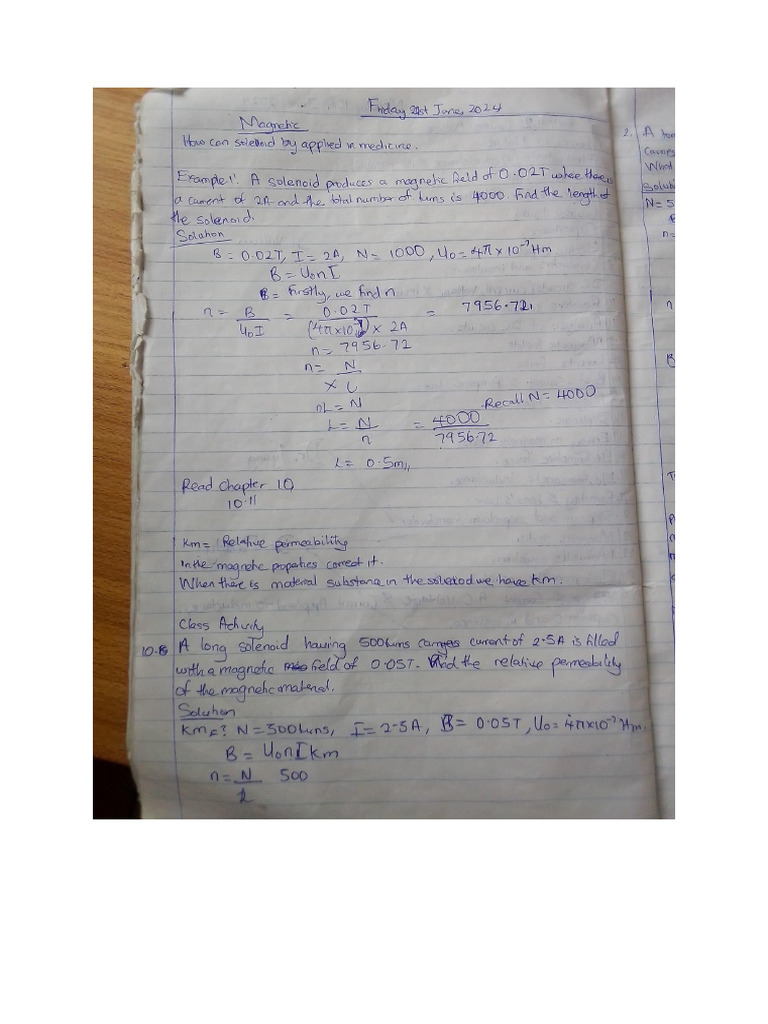 Friday 21st June, 2024
Magnetic
How can solenoid by applied in medicine.
Example 1: A solenoid produces a magnetic field of 0.02T where there is
a current of 2A and the total number of turns is 4000. Find the length of
the solenoid.
Solution
B = 0.02T, I = 2A, N = 1000, U₀ = 4π × 10⁻⁷ Hm
B = U₀nI
B = Firstly, we find n
n = B/U₀I = 0.02T/(4π×10⁻⁷) × 2A = 7956.72//
n = 7956.72
n = N/L
×
nL = N
Recall N = 4000
L = N/n = 4000/7956.72
L = 0.5m//
Read Chapter 10,
10.11
Km = Relative permeability
In the magnetic properties correct it.
When there is material substance in the solenoid we have Km.
Class Activity
10.B A long solenoid having 500turns carries current of 2.5A is filled
with a magnetic field of 0.05T. Find the relative permeability
of the magnetic material.
Solution
Km = ? N = 500turns, I = 2.5A, B = 0.05T, U₀ = 4π×10⁻⁷ Hm.
B = U₀nIKm
n = N/L 500
2. A
What
Solut
N = 5
n =
n
B